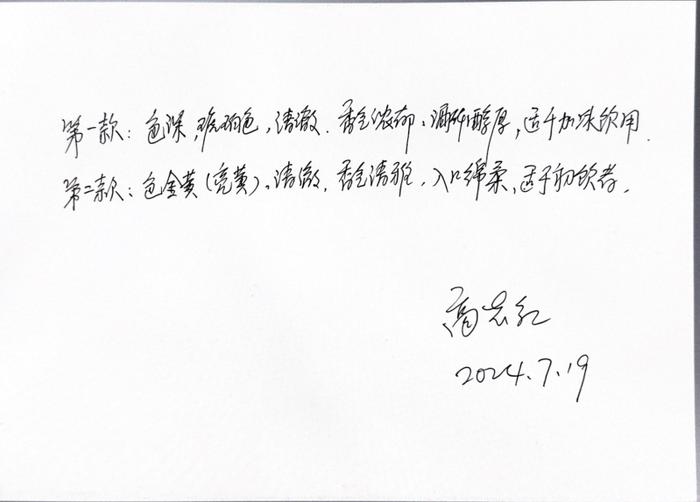 第一款：色深，琥珀色，清澈．香气浓郁，酒体醇厚，适于加冰饮用．
第二款：色金黄（亮黄）。清澈．香气清雅，入口绵柔，适于初饮者．
高
2024.7.19